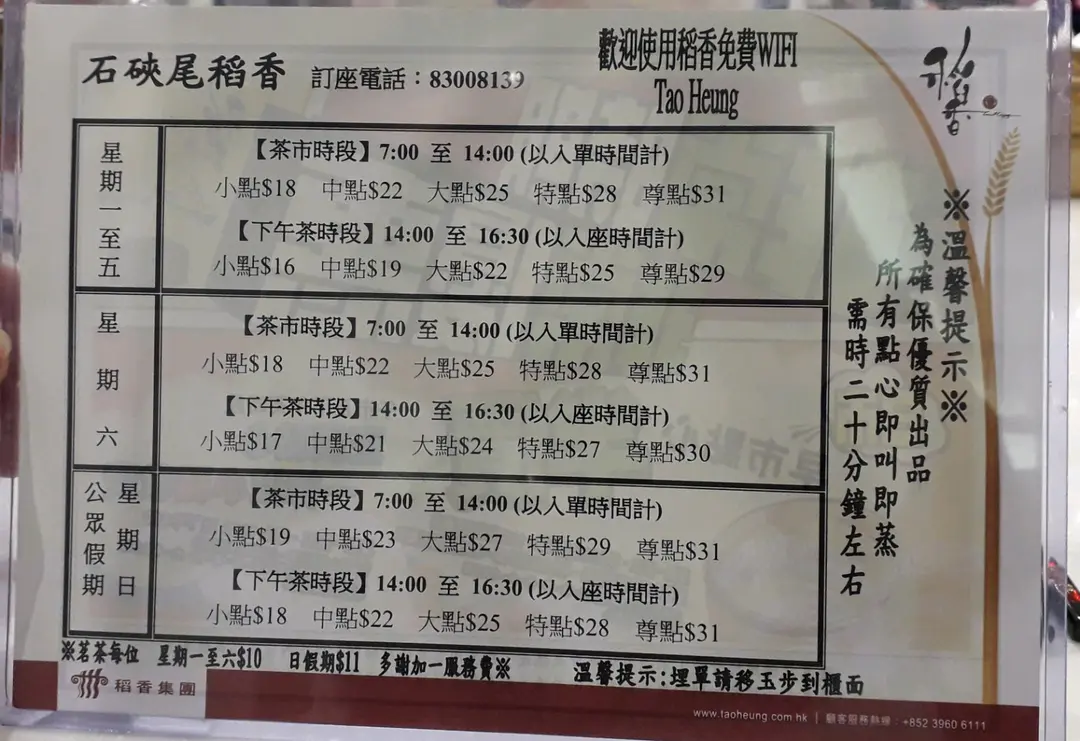 石硤尾稻香 訂座電話：83008139
歡迎使用稻香免費WIFI
Tao Heung
稻香
星期一至五
【茶市時段】7:00 至 14:00 (以入單時間計)
小點$18 中點$22 大點$25 特點$28 尊點$31
【下午茶時段】14:00 至 16:30 (以入座時間計)
小點$16 中點$19 大點$22 特點$25 尊點$29
星期六
【茶市時段】7:00 至 14:00 (以入單時間計)
小點$18 中點$22 大點$25 特點$28 尊點$31
【下午茶時段】14:00 至 16:30 (以入座時間計)
小點$17 中點$21 大點$24 特點$27 尊點$30
星期日
公眾假期
【茶市時段】7:00 至 14:00 (以入單時間計)
小點$19 中點$23 大點$27 特點$29 尊點$31
【下午茶時段】14:00 至 16:30 (以入座時間計)
小點$18 中點$22 大點$25 特點$28 尊點$31
※溫馨提示※
為確保優質出品
所有點心即叫即蒸
需時二十分鐘左右
※茗茶每位 星期一至六$10 日假期$11 多謝加一服務費※
溫馨提示:埋單請移玉步到櫃面
稻香集團
www.taoheung.com.hk | 顧客服務熱線：+852 3960 6111